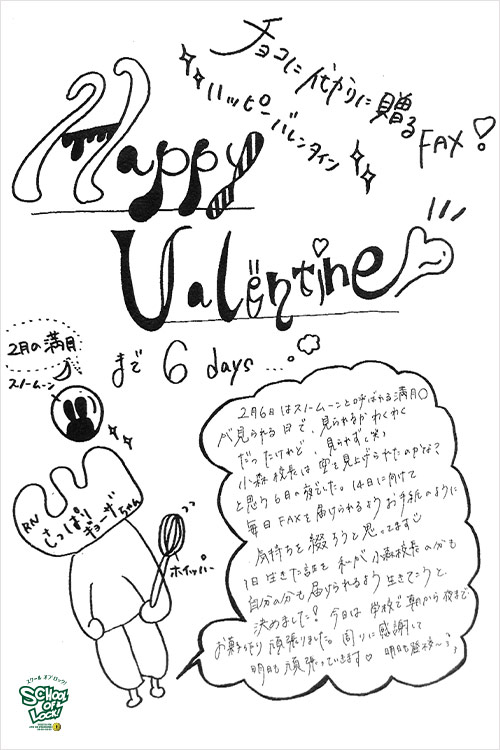 チョコに代わりに贈る
ハッピーバレンタイン
FAX!
Happy
Valentine
まで 6 days...
2月の満月
スノームーン
RN
さっぱり
ギョーザ
ちゃん
ホイッパー
2月6日はスノームーンと呼ばれる満月〇
が見られる日で、見られるかわくわく
だったけれど、見られず(笑)
小森校長は空を見上げられたのかな?
と思う6日の夜でした。14日に向けて
毎日FAXを届けられるようお手紙のように
気持ちを綴ろうと思ってます
1日生きた話を私が小森校長の分も
自分の分も届けられるよう生きてこうと、
決めました!今日は学校で朝から夜まで
お菓子作り頑張りました。周りに感謝して
明日も頑張っていきます♡ 明日も登校〜
スクール オブ ロック!
SCHOOL
OF
LOCK!